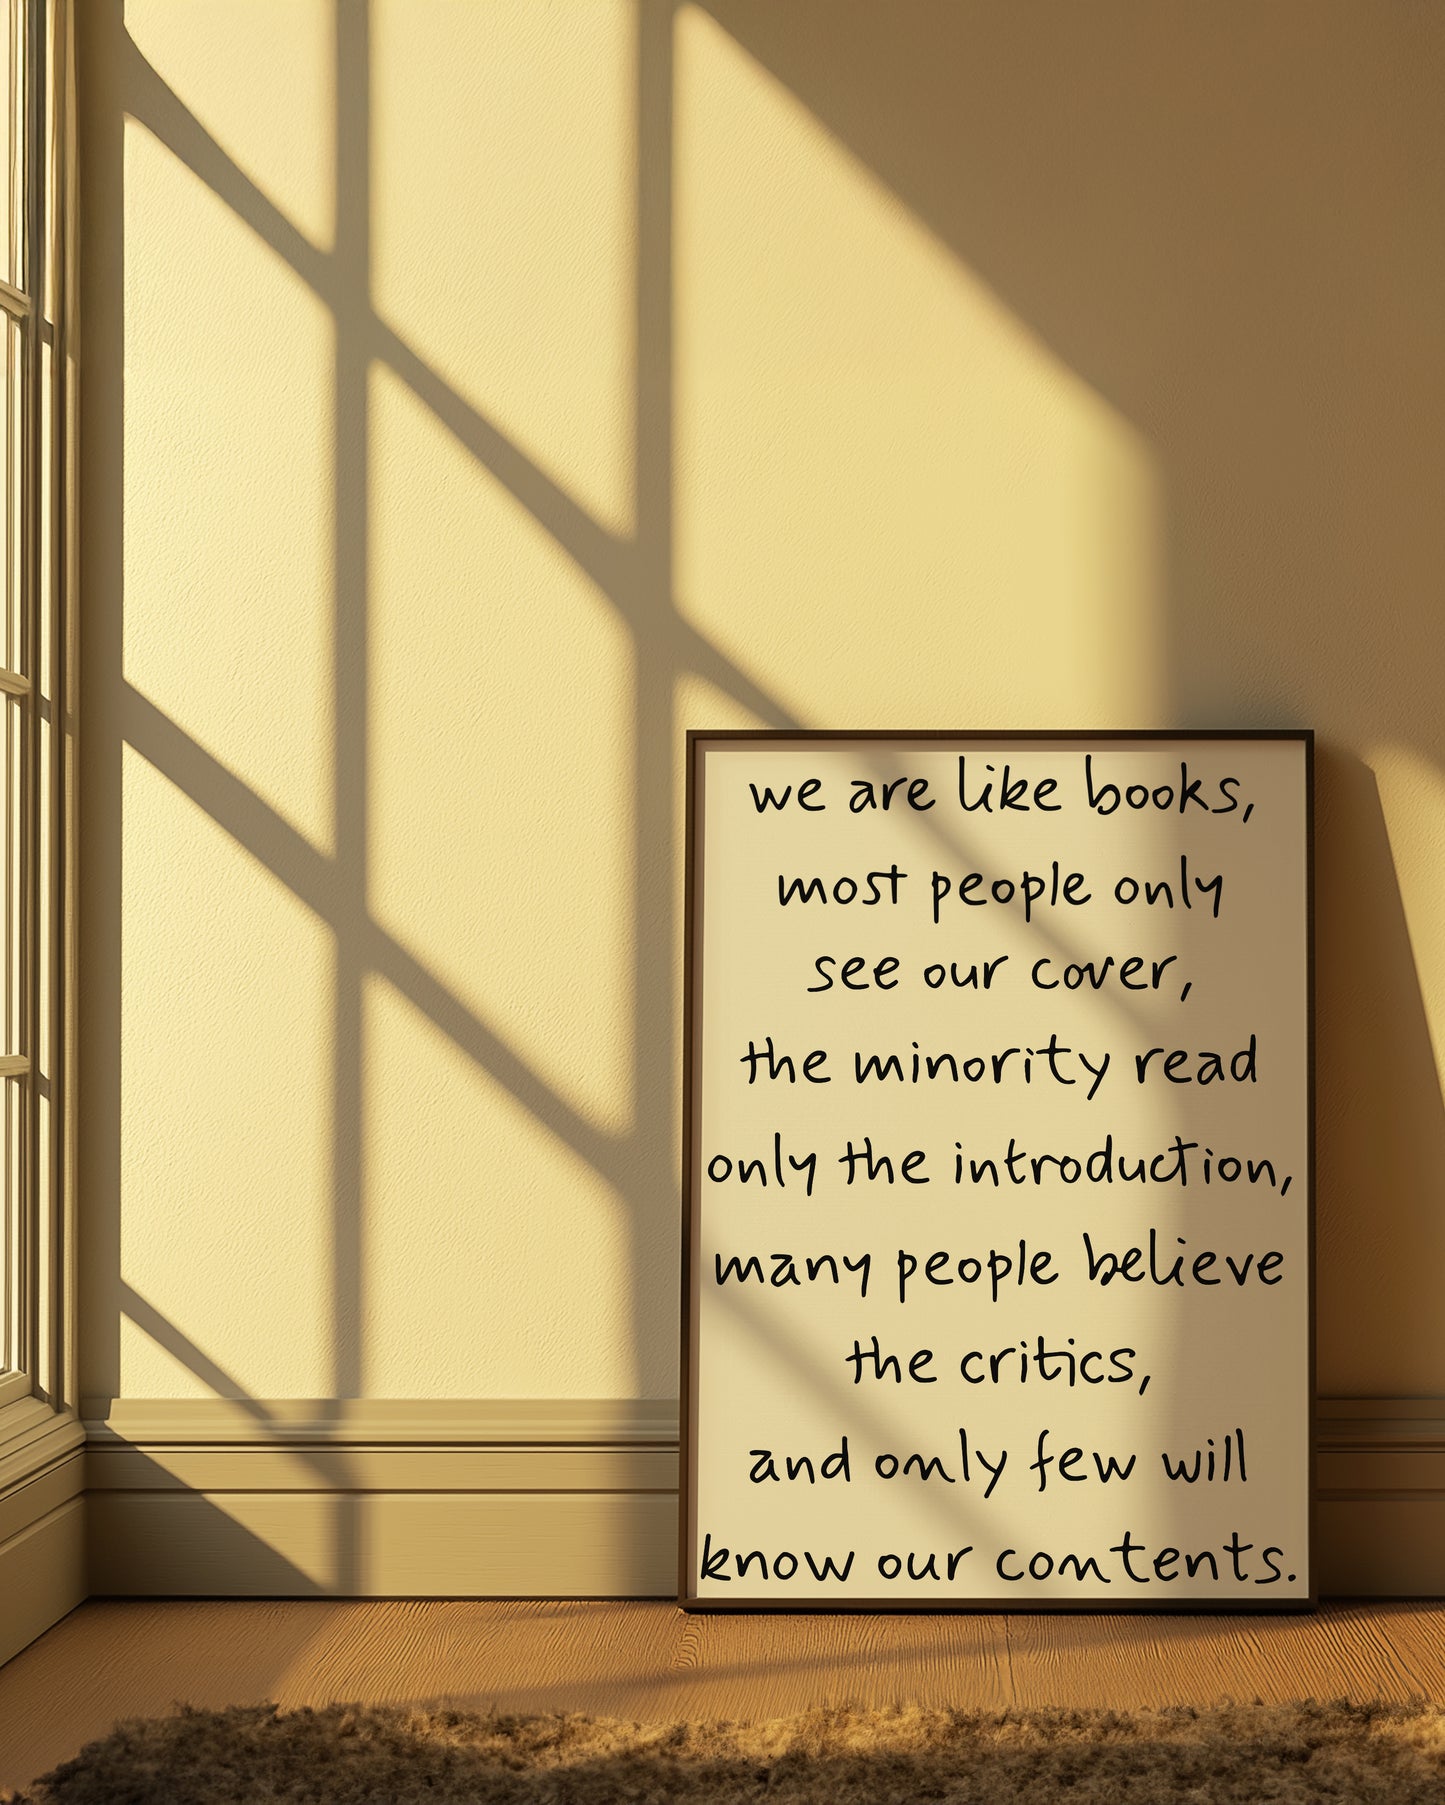 we are like books,
most people only
see our cover,
the minority read
only the introduction,
many people believe
the critics,
and only few will
know our contents.